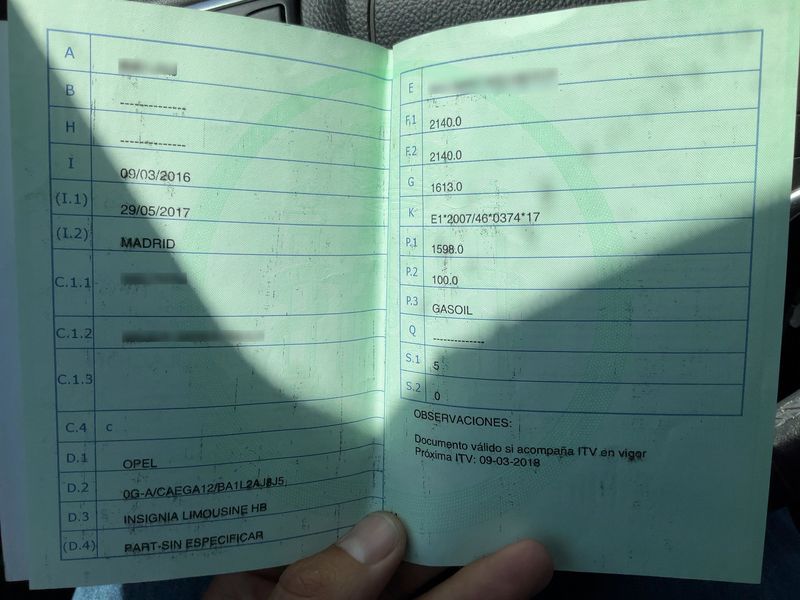 A
B ------------
H ------------
I 09/03/2016
(I.1) 29/05/2017
(I.2) MADRID
C.1.1
C.1.2
C.1.3
C.4 c
D.1 OPEL
D.2 0G-A/CAEGA12/BA1L2AJ8J5
D.3 INSIGNIA LIMOUSINE HB
(D.4) PART-SIN ESPECIFICAR
E
F.1 2140.0
F.2 2140.0
G 1613.0
K E1*2007/46*0374*17
P.1 1598.0
P.2 100.0
P.3 GASOIL
Q --------------
S.1 5
S.2 0
OBSERVACIONES:
Documento válido si acompaña ITV en vigor
Próxima ITV: 09-03-2018